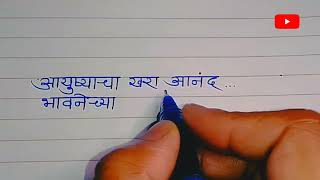 आयुष्याचा खरा आनंद ...
भावनेच्या